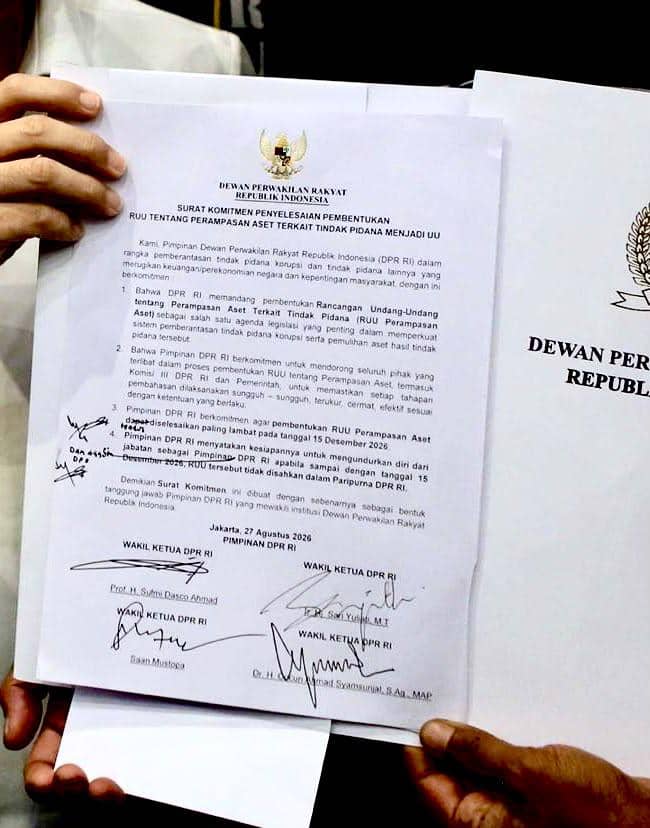 DEWAN PERWAKILAN RAKYAT
REPUBLIK INDONESIA
SURAT KOMITMEN PENYELESAIAN PEMBENTUKAN
RUU TENTANG PERAMPASAN ASET TERKAIT TINDAK PIDANA MENJADI UU
Kami, Pimpinan Dewan Perwakilan Rakyat Republik Indonesia (DPR RI) dalam
rangka pemberantasan tindak pidana korupsi dan tindak pidana lainnya yang
merugikan keuangan/perekonomian negara dan kepentingan masyarakat, dengan ini
berkomitmen :
1. Bahwa DPR RI memandang pembentukan Rancangan Undang-Undang
tentang Perampasan Aset Terkait Tindak Pidana (RUU Perampasan
Aset) sebagai salah satu agenda legislasi yang penting dalam memperkuat
sistem pemberantasan tindak pidana korupsi serta pemulihan aset hasil tindak
pidana tersebut.
2. Bahwa Pimpinan DPR RI berkomitmen untuk mendorong seluruh pihak yang
terlibat dalam proses pembentukan RUU tentang Perampasan Aset, termasuk
Komisi III DPR RI dan Pemerintah, untuk memastikan setiap tahapan
pembahasan dilaksanakan sungguh – sungguh, terukur, cermat, efektif sesuai
dengan ketentuan yang berlaku.
3. Pimpinan DPR RI berkomitmen agar pembentukan RUU Perampasan Aset
dapat diselesaikan paling lambat pada tanggal 15 Desember 2026
harus
4. Pimpinan DPR RI menyatakan kesiapannya untuk mengundurkan diri dari
jabatan sebagai Pimpinan DPR RI apabila sampai dengan tanggal 15
Desember 2026, RUU tersebut tidak disahkan dalam Paripurna DPR RI.
Dan anggota
DPR
Demikian Surat Komitmen ini dibuat dengan sebenarnya sebagai bentuk
tanggung jawab Pimpinan DPR RI yang mewakili institusi Dewan Perwakilan Rakyat
Republik Indonesia.
Jakarta, 27 Agustus 2026
PIMPINAN DPR RI
WAKIL KETUA DPR RI
Prof. H. Sufmi Dasco Ahmad
WAKIL KETUA DPR RI
Sari Yuliati, M.T
WAKIL KETUA DPR RI
Saan Mustopa
WAKIL KETUA DPR RI
Dr. H. Ahmad Syamsurijal, S.Ag., MAP
DEWAN PER
REPUBL